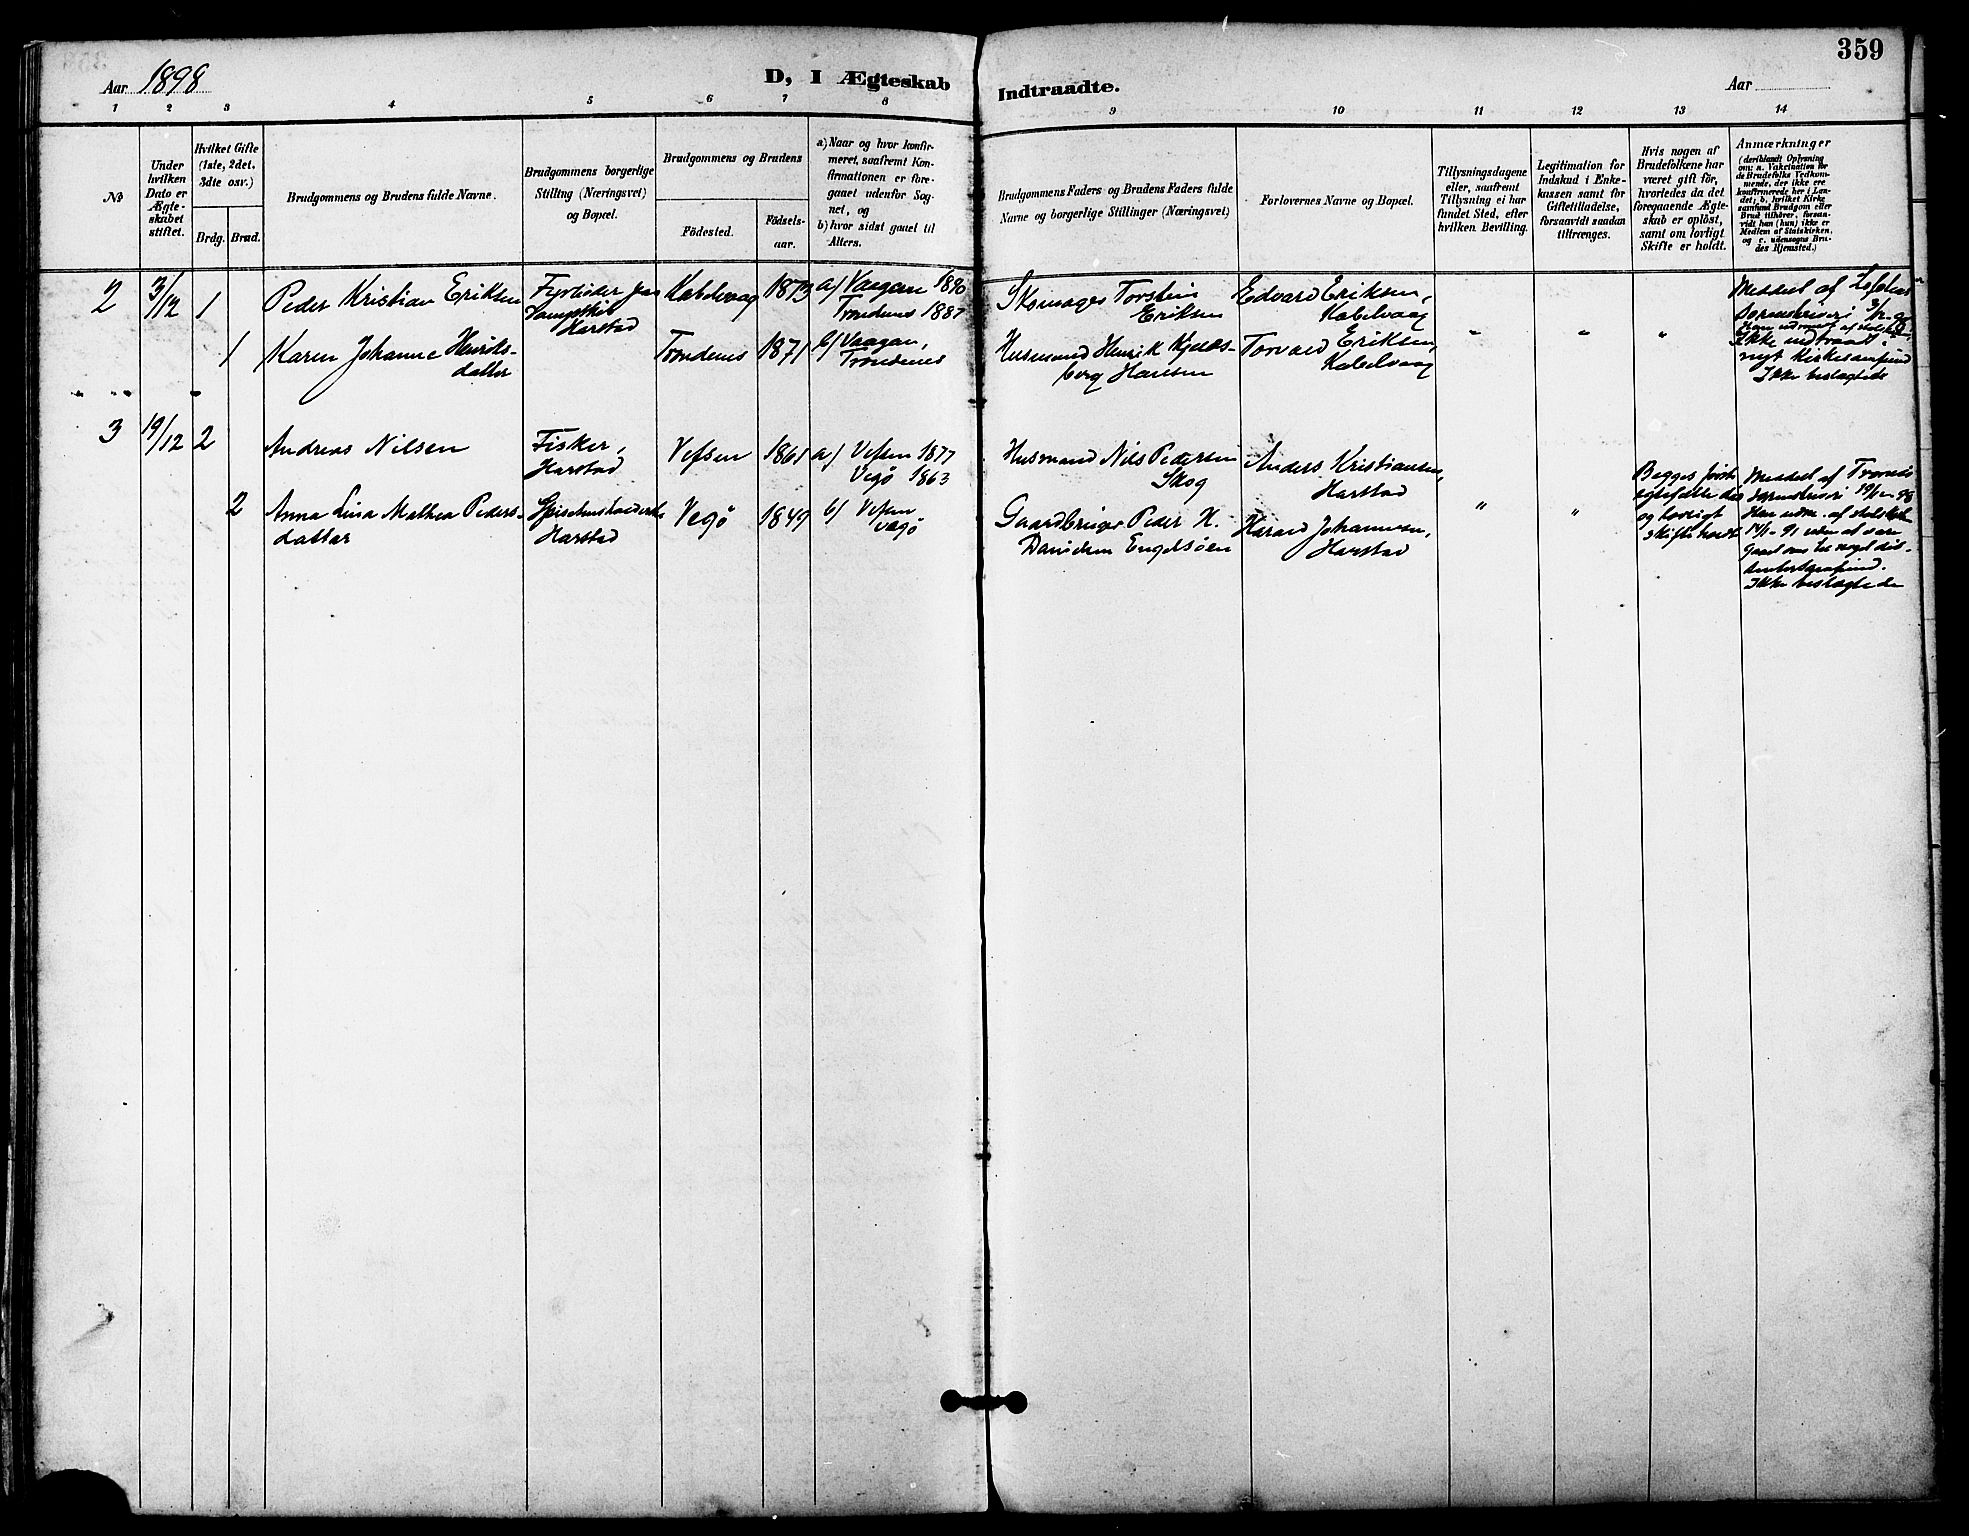 359
Aar 1898
D, I Ægteskab
Indtraadte.
Aar
1 2 3 4 5 6 7 8 9 10 11 12 13 14
No
Under
hvilken
Dato er
Ægte-
skabet
stiftet.
Hvilket Gifte
(1ste, 2det,
3die osv.)
Brdg. Brud.
Brudgommens og Brudens fulde Navne.
Brudgommens borgerlige
Stilling (Næringsvei)
og Bopæl.
Brudgommens og Brudens
Födested.
Födsels-
aar.
a) Naar og hvor konfir-
meret, saafremt Kon-
firmationen er fore-
gaaet udenfor Sog-
net, og
b) hvor sidst gaaet til
Alters.
Brudgommens Faders og Brudens Faders fulde
Navne og borgerlige Stillinger (Næringsvei)
Forlovernes Navne og Bopæl.
Tillysningsdagene
eller, saafremt
Tillysning ei har
fundet Sted, efter
hvilken Bevilling.
Legitimation for
Indskud i Enke-
kassen samt for
Giftetilladelse,
forsaavidt saadan
tiltrænges.
Hvis nogen af
Brudefolkene har
været gift før,
hvorledes da det
foregaaende Ægte-
skab er oplöst,
samt om lovligt
Skifte er holdt.
Anmærkninger
(deriblandt Oplysning
om: a. Vakcination for
de Brudefolks Vedkom-
mende, der ikke ere
konfirmerede her i Lan-
det; b. hvilket Kirke-
samfund Brudgom eller
Brud tilhörer, forsaa-
vidt han (hun) ikke er
Medlem af Statskirken,
og c. udensogns Bru-
des Hjemsted.)
2 3/12 1 Peder Kristian Eriksen
Fyrböder paa
Dampskib
Harstad
Kabelvaag 1873 a/ Vaagan 1890
Trondenes 1887
Skomager Torstein
Eriksen
Edvard Eriksen,
Kabelvaag
" " "
Meddel af Lofotens
Ikke indtraadt i
nyt Kirkesamfund
Ikke beslægtede
1 Karen Johanne Henriks-
datter
Trondenes 1871 b/ Vaagan,
Trondenes
Husmand Henrik
berg Hansen
Torvald Eriksen,
Kabelvaag
3 19/12 2 Andreas Nilsen
Fisker,
Harstad
Vefsen 1861 a/ Vefsen 1877
Vegö 1863
Husmand Nils Pedersen
Skog
Anders Kristiansen,
Harstad
" "
Begges første
ægtefælle død
og lovligt
skifte holdt
Meddel af Tromsö
14/1-91 uden at være
Ikke beslægtede
2 Anna Lina Mathea Peders-
datter
Harstad
Vegö 1849 b/ Vefsen
Vegö
Gaardbruger Peder H.
Danielsen
Harald Johannesen,
Harstad